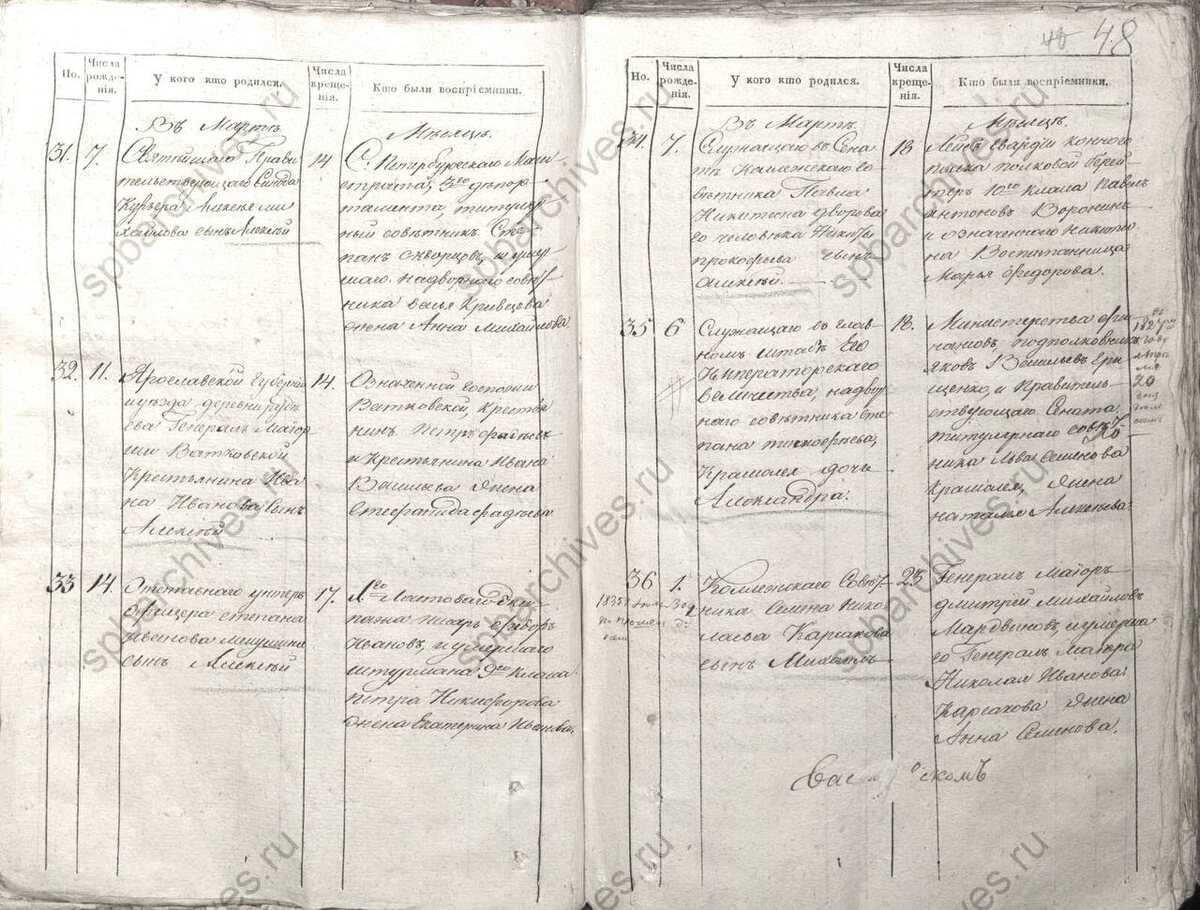 48
Но.
Числа рожде-нія.
У кого кто родился.
Числа креще-нія.
Кто были воспріемники.
Въ Мартѣ
Мѣсяцѣ.
31.
7.
Святѣйшаго Прави
тельствующаго Синода
Курьера Алексѣя Ми
хайлова сынъ Алексѣй
14
С. Петербургскаго Маги
страта, 3го депар
тамента, титуляр
ный совѣтникъ Сте
панъ Скворцовъ, и
надворнаго совѣт
ника Кривцова
жена Анна Михайлова
32.
11.
Ярославской Губерніи
и уѣзда деревни
Генералъ Маіор
ши Ватковской
Крестьянина Ива
на Иванова сынъ
Алексѣй
14.
Означенной госпожи
Ватковской, крестья
нинъ Петръ Фадѣевъ
и Крестьянина Ивана
Васильева жена
Стефанида Фадѣева
33
14.
Отставнаго унтеръ
офицера Степана
сынъ Алексѣй
17.
Ластоваго Эки
пажа писарь Федоръ
Ивановъ, и умершаго
штурмана 9го класса
Петра Никифорова
жена Екатерина Иванова.
Но.
Числа рожде-нія.
У кого кто родился.
Числа креще-нія.
Кто были воспріемники.
Въ Мартѣ
Мѣсяцѣ.
34.
7.
Служащаго въ Сена
тѣ Коллежскаго со
вѣтника Павла
Никитина дворова
го человѣка Никиты
Прокофьева сынъ
Алексѣй.
18
Лейбъ Гвардіи коннаго
полка полковой берей
теръ 10го класса Павелъ
Антоновъ Воронинъ
и означеннаго Никити
на Воспитанница
Марья Федорова.
35
6
Служащаго въ глав
номъ штабѣ Его
Императорскаго
Величества, надвор
наго совѣтника Сте
пана
Крамалея дочь
Александра.
18.
Министерства фи
нансовъ, подполковникъ
Яковъ Васильевъ
и Правитель
ствующаго Сената
титулярнаго совѣт
ника Льва Семенова
Крамалея, жена
Наталья Алексѣева.
20
36
1.
Коллежскаго Совѣт
ника Семена Нико
лаева Карсакова
сынъ Михаилъ
23
Генералъ Маіоръ
Дмитрій Михайловъ
Мардвиновъ, и умерша
го Генералъ Маіора
Николая Иванова
Карсакова жена
Анна Семенова.
spbarchives.ru